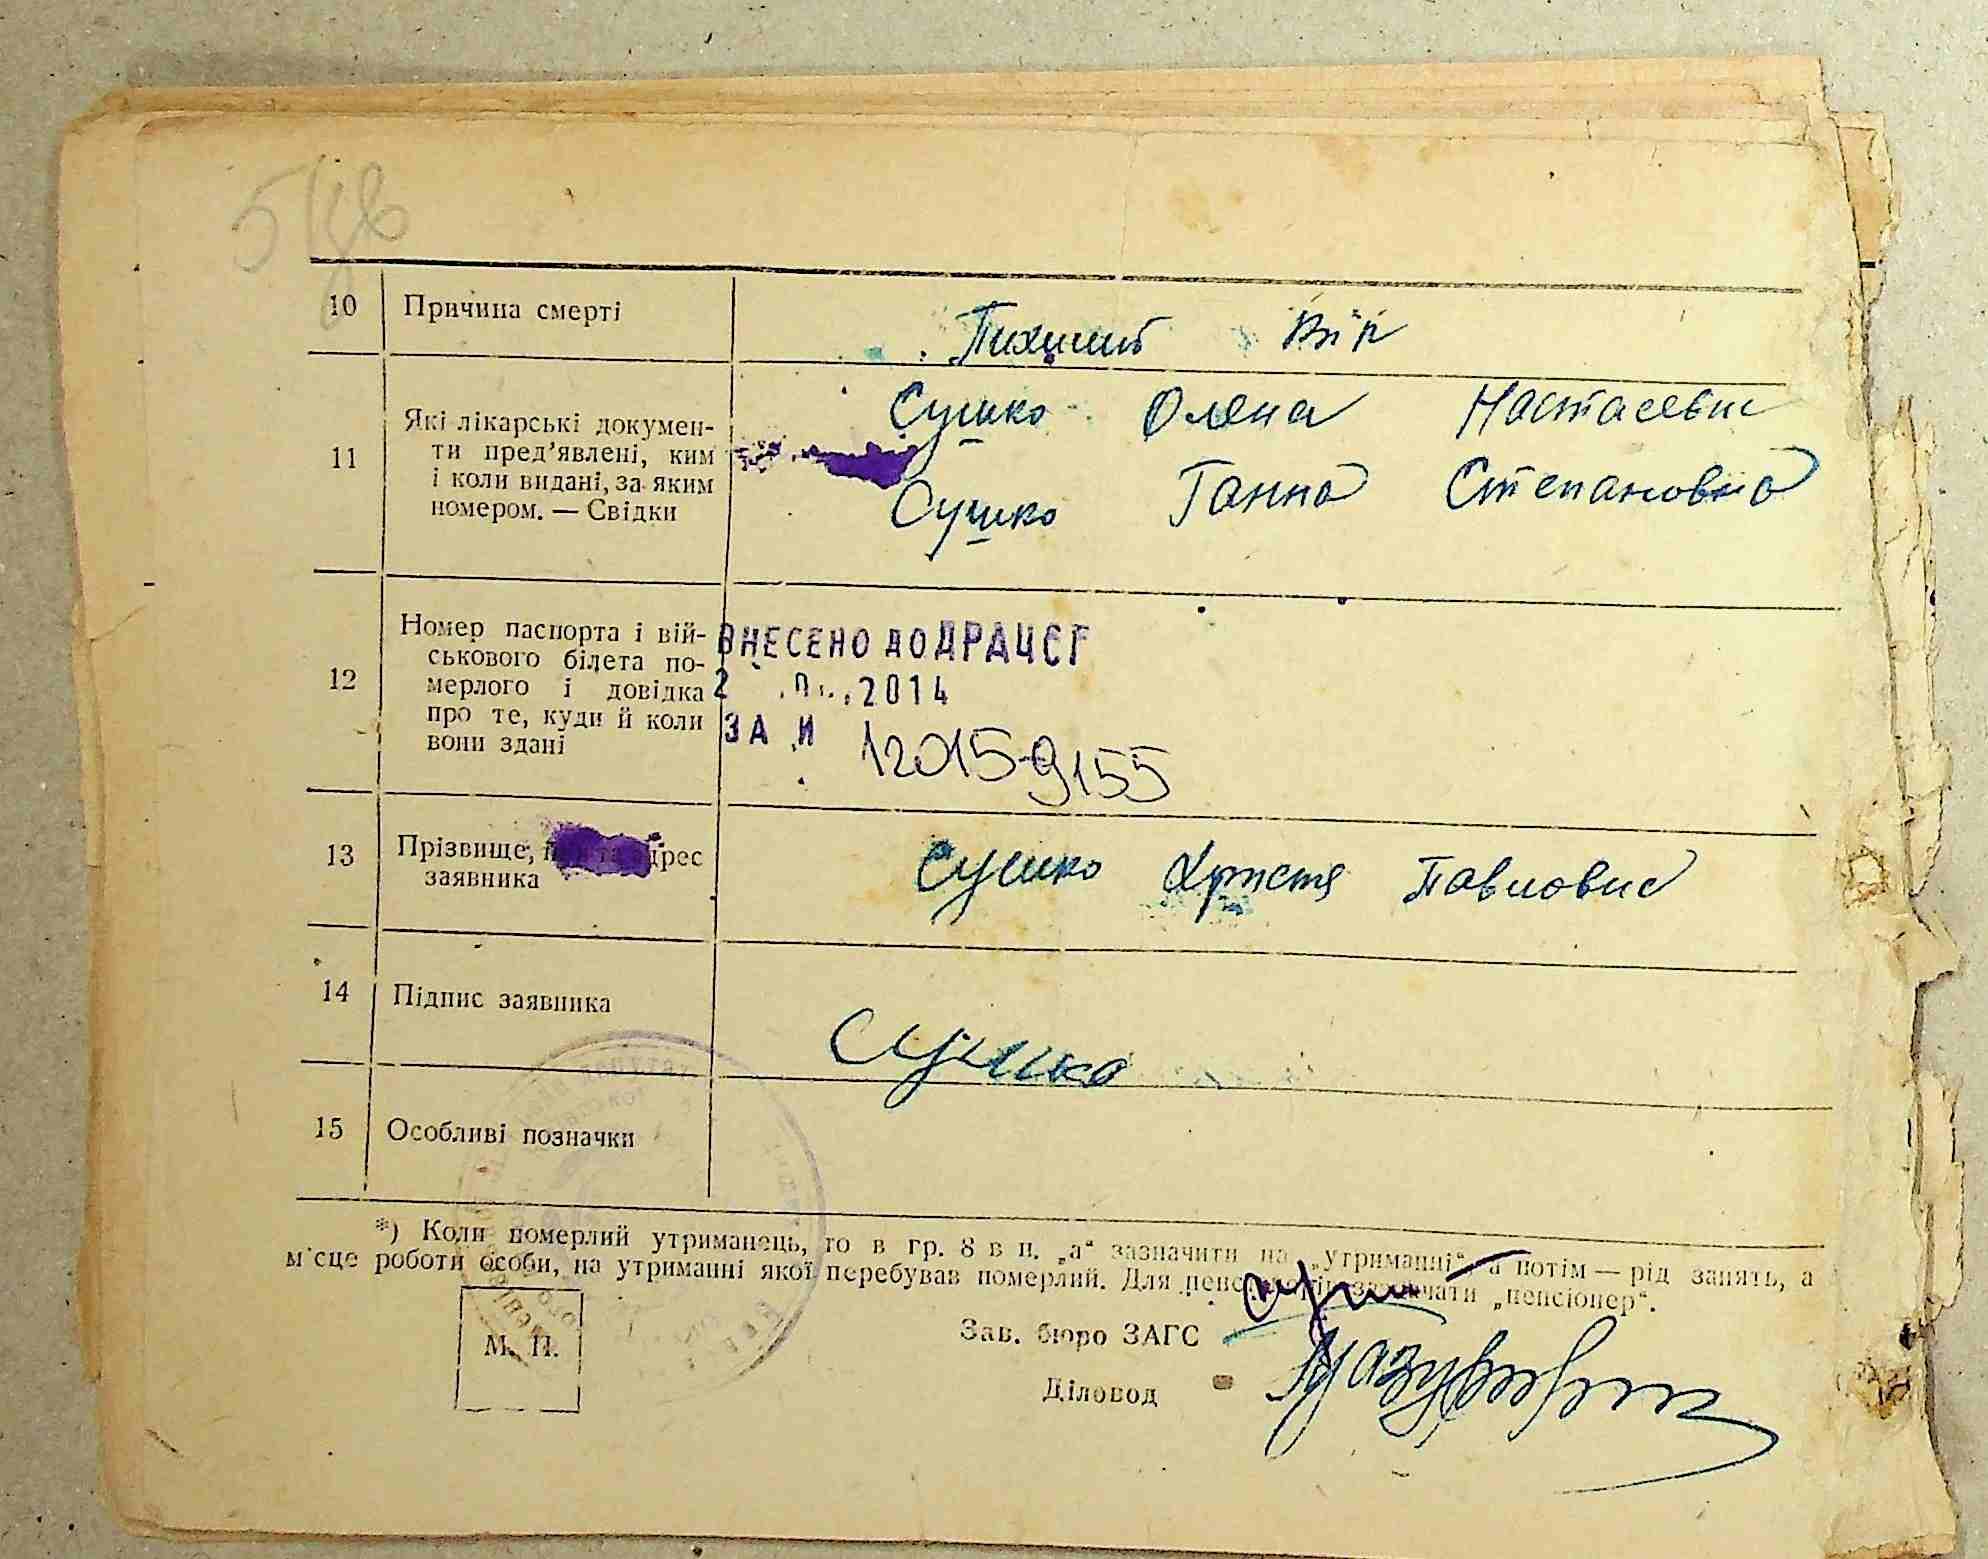 10 Причина смерті
Похилий вік
11 Які лікарські докумен-
ти пред'явлені, ким
і коли видані, за яким
номером. — Свідки
Сушко Оляна Настасевна
Сушко Ганна Степановна
12 Номер паспорта і вій-
ськового білета по-
мерлого і довідка
про те, куди й коли
вони здані
ВНЕСЕНО ДО ДРАЦСГ
2014
ЗА №
12015-9155
13 Прізвище, адрес
заявника
Сушко Христя Павловна
14 Підпис заявника
Сушко
15 Особливі позначки
*) Коли померлий утриманець, то в гр. 8 в п. „а“ зазначити на „утриманні“, а потім — рід занять, а
місце роботи особи, на утриманні якої перебував померлий. Для пенсіонерів зазначати „пенсіонер“.
М. П.
Зав. бюро ЗАГС
Діловод